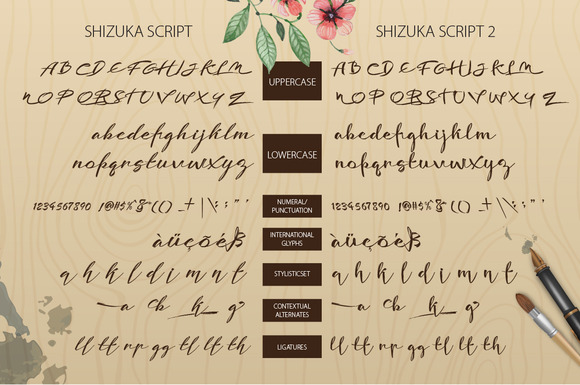 SHIZUKA SCRIPT SHIZUKA SCRIPT 2
ABCDEFGHIJKLM UPPERCASE ABCDEFGHIJKLM
NOPQRSTUVWXYZ NOPQRSTUVWXYZ
abcdefghijklm LOWERCASE abcdefghijklm
nopqrstuvwxyz nopqrstuvwxyz
1234567890 !@#$%&*() NUMERAL/ 1234567890 !@#$%&*()
PUNCTUATION
àüçõéß INTERNATIONAL àüçõéß
GLYPHS
q h k l d i m n t STYLISTICSET q h k l d i m n t
a cb k g CONTEXTUAL a cb k g
ALTERNATES
ll tt rr gg tl lt th LIGATURES ll tt rr gg tl lt th